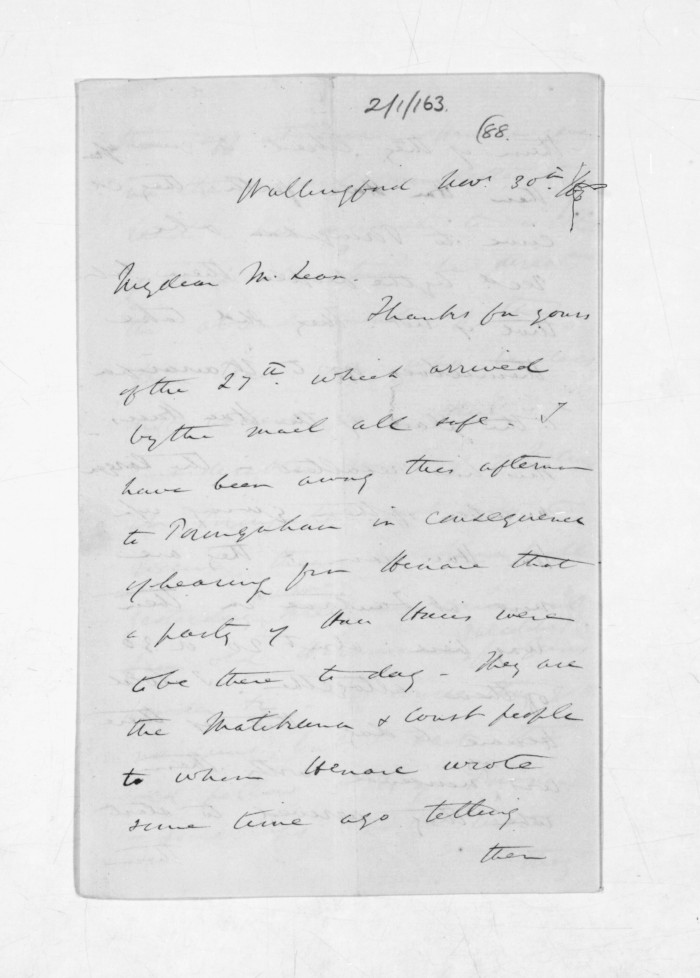 2/1/163.
(88.
Wallingford Novr. 30th
My dear McLean.
Thanks for yours
of the 27th. which arrived
by the mail all safe. I
have been away this afternoon
to Porangahau in consequence
of hearing from Henare that
a party of Hau Haus were
to be there to day - They are
the & Coast people
to whom Henare wrote
some time ago telling
them